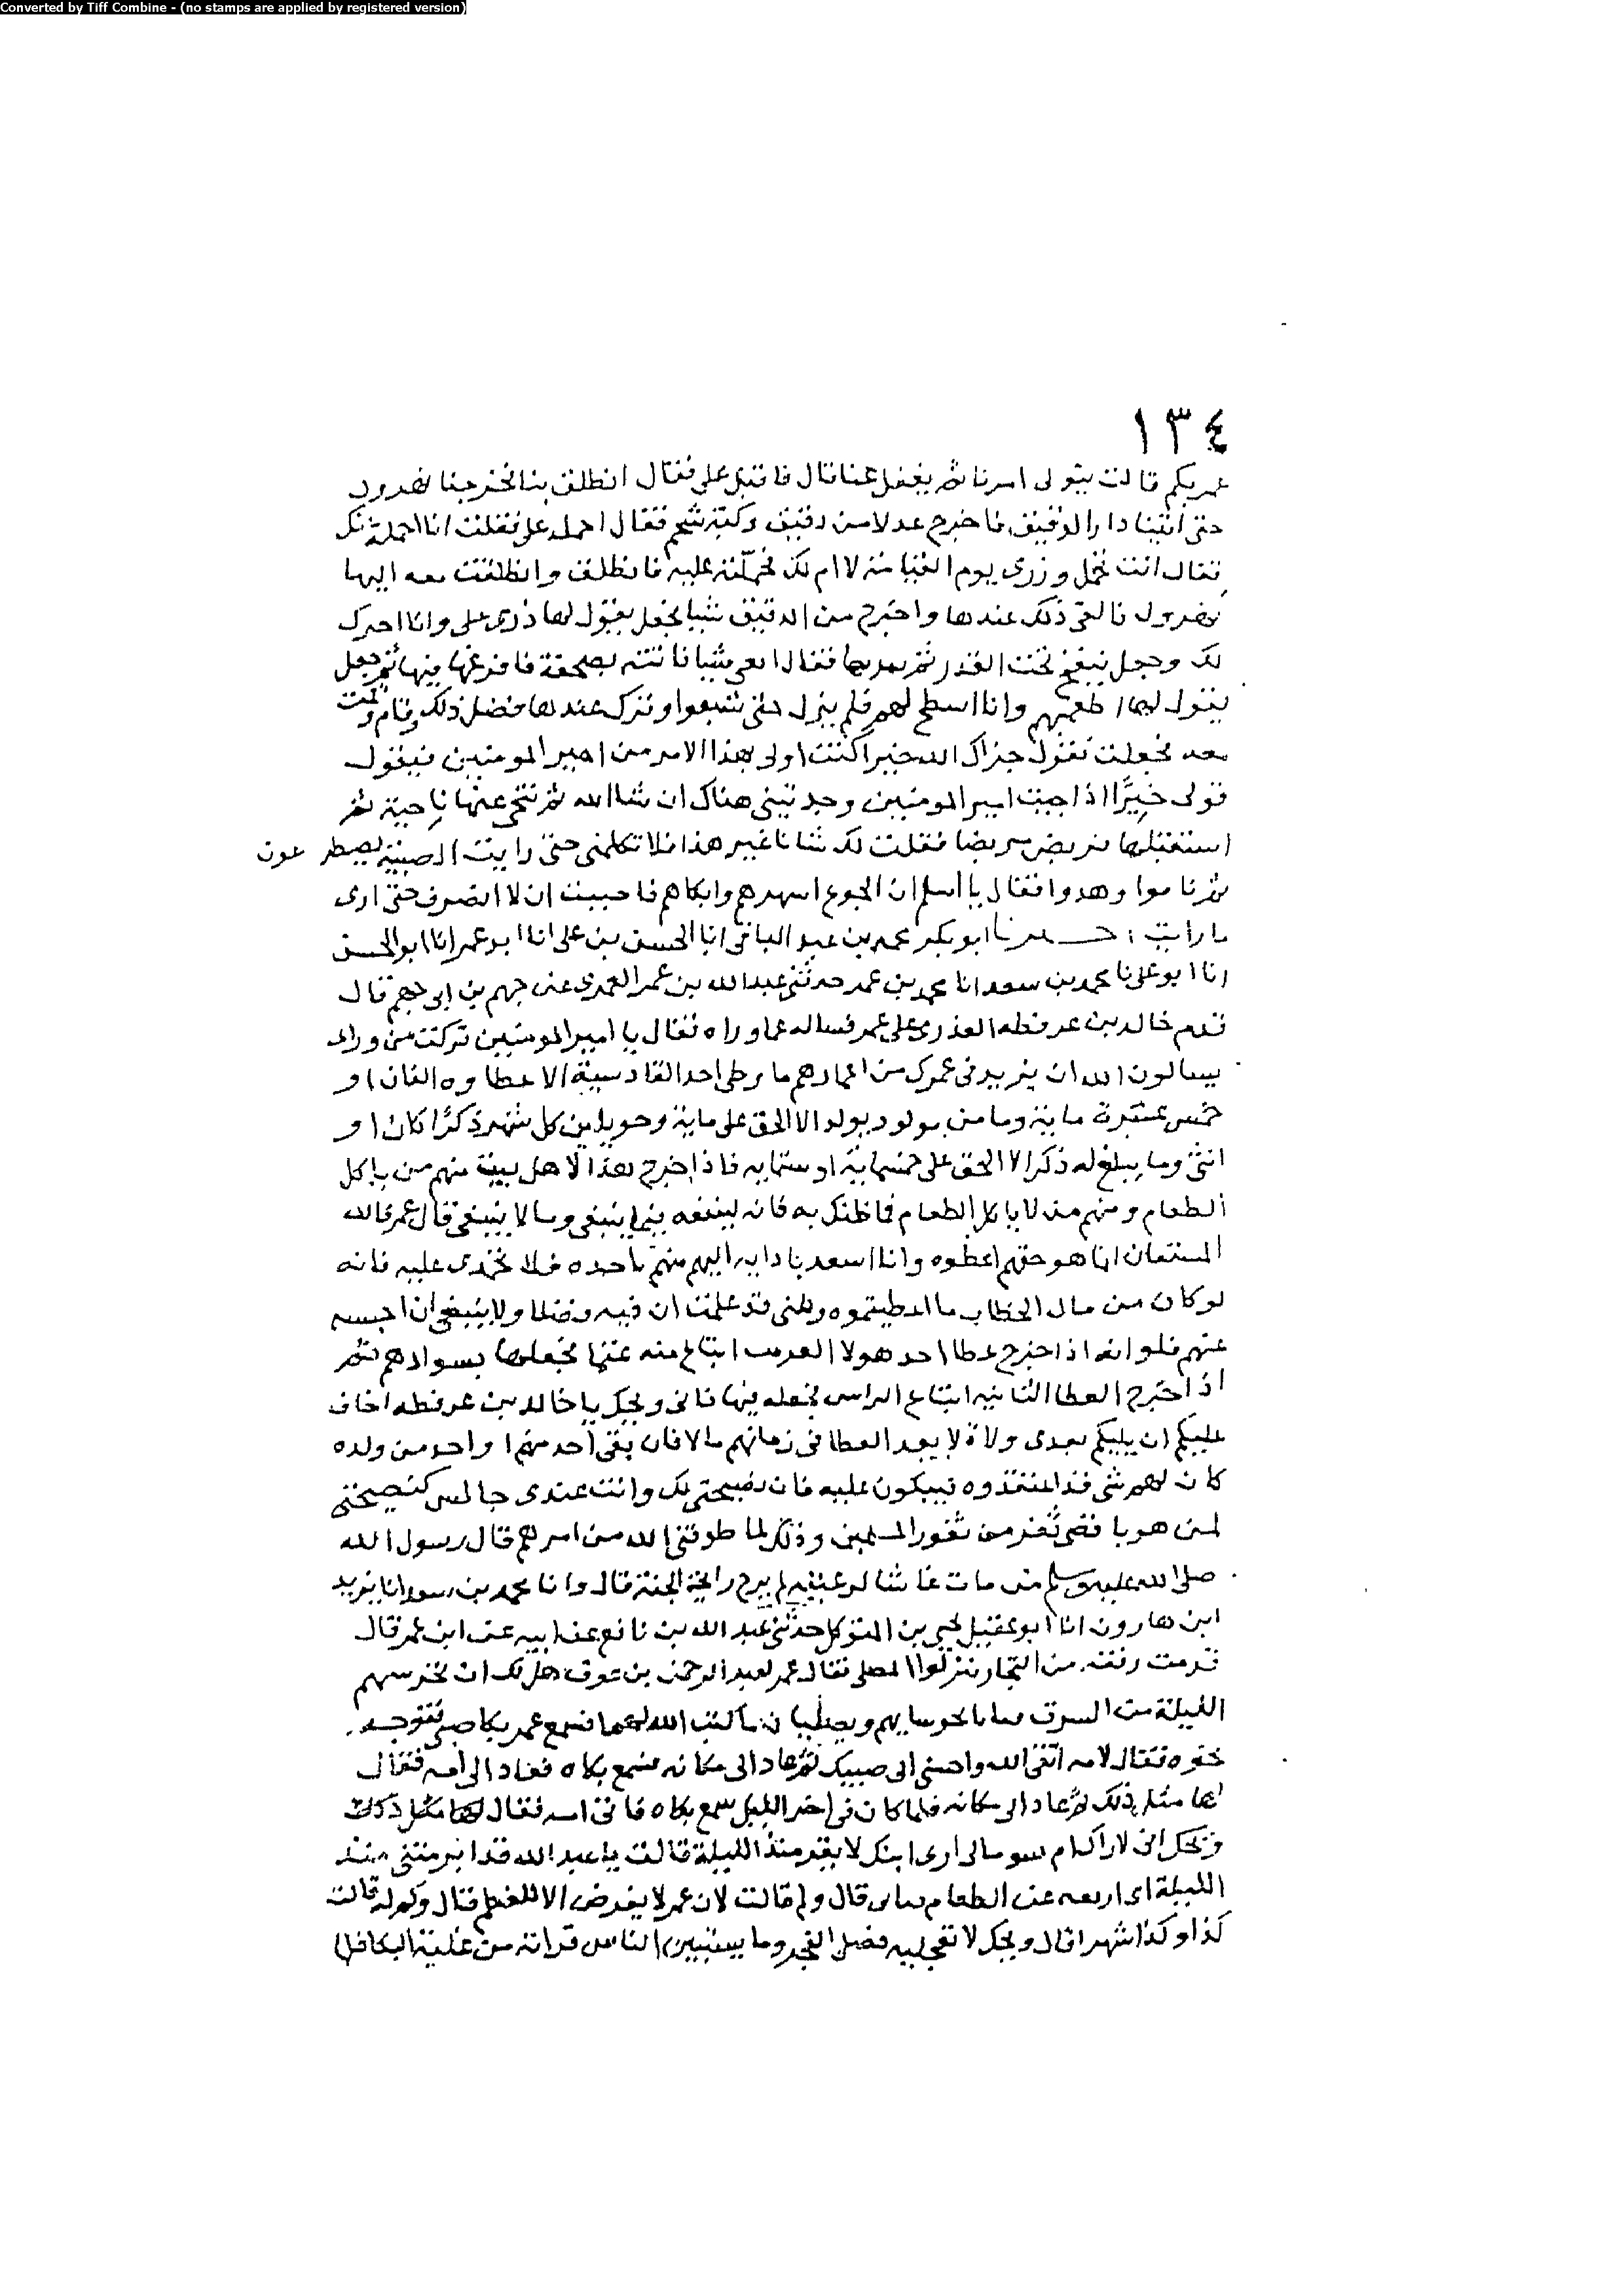 Converted by Tiff Combine - (no stamps are applied by registered version)
١٣٤
عمر بكم قالت يتولى امرنا ثم يغفل عنا قال فاقبل على فقال انطلق بنا فخرجنا نهرول
حتى اتينا دار الدقيق فاخرج عدلا من دقيق وكبة شحم فقال احمله على فقلت انا احمله عنك
فقال انت تحمل وزرى يوم القيامة لا ام لك فحملته عليه فانطلق وانطلقت معه اليها
نهرول فالقى ذلك عندها واخرج من الدقيق شيا فجعل يقول لها ذرى على وانا احرك
لك وجعل ينفخ تحت القدر ثم يمر بها فقال ابغى شيا فاتته بصحفة فافرغها فيها ثم جعل
يقول لها اطعميهم وانا اسطح لهم فلم يزل حتى شبعوا وترك عندها فضل ذلك وقام وقمت
معه فجعلت تقول جزاك الله خيرا كنت اولى بهذا الامر من امير المومنين فيقول
قولى خيرا اذا جيت امير المومنين وجدتينى هناك ان شا الله ثم تنحى عنها ناحية ثم
استقبلها فربض مربضا فقلت لك شانا غير هذا فلا تكلمنى حتى رايت الصبية يصطرعون
ثم ناموا وهدوا فقال يا اسلم ان الجوع اسهرهم وابكاهم فاحببت ان لا انصرف حتى ارى
ما رايت اخبرنا ابو بكر محمد بن عبد الباقى انا الحسن بن على انا ابو عمر انا ابو الحسن
انا ابو على نا محمد بن سعد انا محمد بن عمر حدثنى عبد الله بن عمر العمرى عن جهم بن ابى جهم قال
قدم خالد بن عرفطه العذرى على عمر فساله عما وراه فقال يا امير المومنين تركت من وراى
يسالون الله ان يزيد فى عمرك من اعمارهم ما وطى احد القادسية الا عطاوه الفان او
خمس عشرة ماية وما من مولود يولد الا الحق على ماية وجريبين كل شهر ذكرا كان او
انثى وما يبلغ له ذكر الا الحق على خمسماية او ستمايه فاذا خرج هذا لاهل بيت منهم من ياكل
الطعام ومنهم من لا ياكل الطعام فما ظنك به فانه لينفقه فيما ينبغى وما لا ينبغى قال عمر فالله
المستعان انما هو حقهم اعطوه وانا اسعد بادايه اليهم منهم باخذه فلا تحمدنى عليه فانه
لو كان من مال الخطاب ما اعطيتموه ولكنى قد علمت ان فيه فضلا ولا ينبغى ان احبسه
عنهم فلو انه اذا خرج عطا احد هولا العرب ابتاع منه غنما فجعلها بسوادهم ثم
اذا خرج العطا الثانيه ابتاع الراس فجعله فيها فانى ويحك يا خالد بن عرفطه اخاف
عليكم ان يليكم بعدى ولاة لا يعد العطا فى زمانهم مالا فان بقى احد منهم او احد من ولده
كان لهم شى قد اعتقدوه فيتكون عليه فان نصيحتى لك وانت عندى جالس كنصيحتى
لمن هو باقصى ثغر من ثغور المسلمين وذلك لما طوقنى الله من امرهم قال رسول الله
صلى الله عليه وسلم من مات غاشا لرعيته لم يرح رايحة الجنة قال وانا محمد بن سعد انا يزيد
ابن هارون انا ابو عقيل يحيى بن المتوكل حدثنى عبد الله بن نافع عن ابيه عن ابن عمر قال
قدمت رفقة من التجار فنزلوا المصلى فقال عمر لعبد الرحمن بن عوف هل لك ان نحرسهم
الليلة من السرق فباتا يحرسانهم ويصليان ما كتب الله لهما فسمع عمر بكا صبى فتوجه
نحوه فقال لامه اتقى الله واحسنى الى صبيك ثم عاد الى مكانه فسمع بكاه فعاد الى امه فقال
لها مثل ذلك ثم عاد الى مكانه فلما كان فى اخر الليل سمع بكاه فاتى امه فقال لها مثل ذلك
ويحك انى لاراك ام سو مالى ارى ابنك لا يقر منذ الليلة قالت يا عبد الله قد ابرمتنى منذ
الليلة انى اربعه عن الطعام فيابى قال ولم قالت لان عمر لا يفرض الا للفطم قال وكم له قالت
كذا وكذا شهرا قال ويحك لا تعجليه فصلى الفجر وما يستبين الناس قراته من غلبة البكا فلما